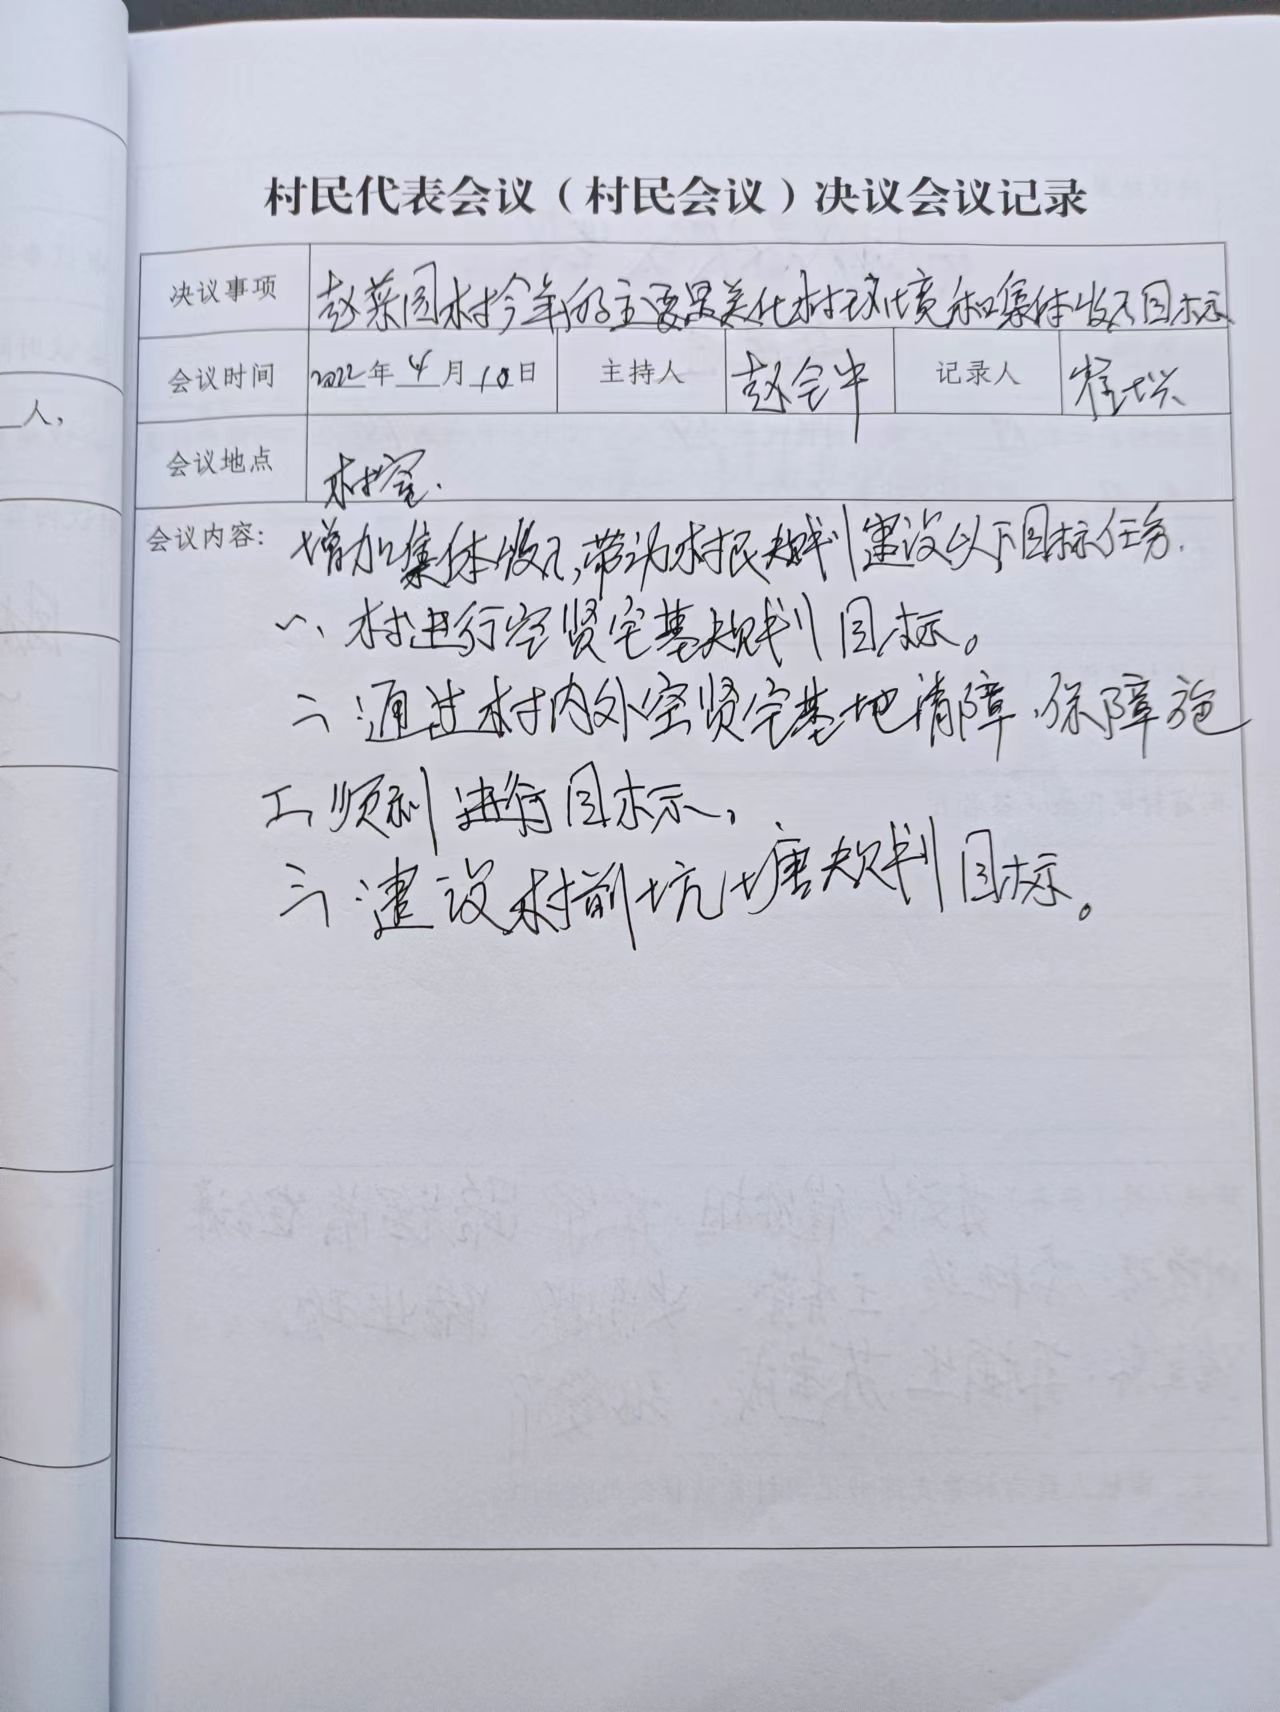 村民代表会议（村民会议）决议会议记录
决议事项 赵菜园村今年的主要是美化村环境和集体收入目标
会议时间 2022年4月10日 主持人 赵会中 记录人
人，
会议地点 村室.
会议内容: 增加集体收入,带动村民规划建设以下目标任务.
一、村进行空贤宅基规划目标。
二:通过村内外空贤宅基地清障,保障施
工顺利进行目标,
三:建设村前坑塘规划目标。